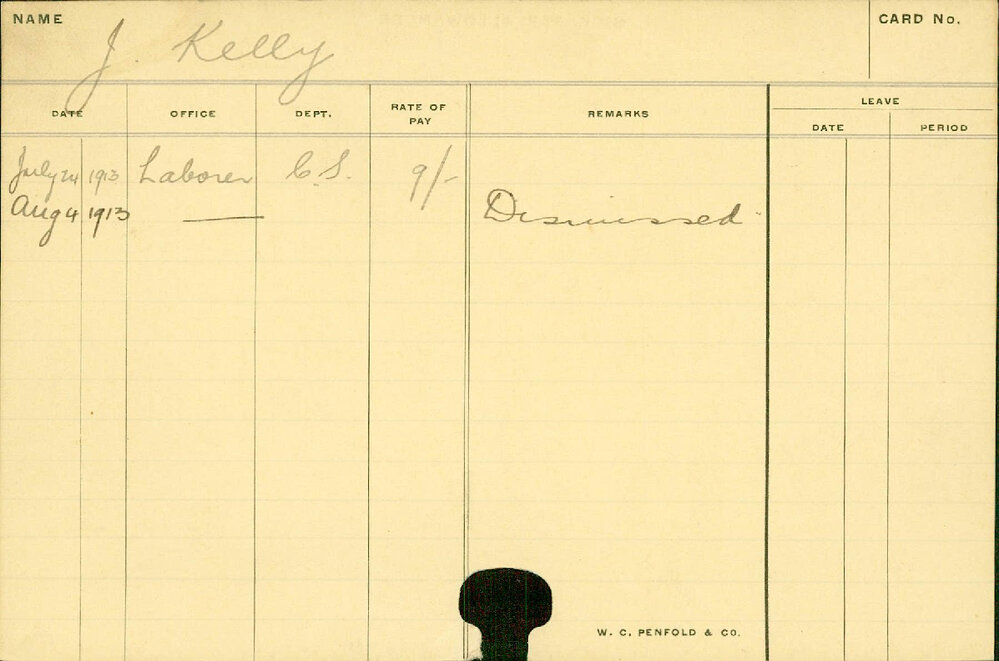 NAME J. Kelly CARD No.
DATE OFFICE DEPT. RATE OF PAY REMARKS LEAVE
DATE PERIOD
July 24 1913 Laborer C.S. 9/-
Aug 4 1913 — Dismissed
W. C. PENFOLD & CO.